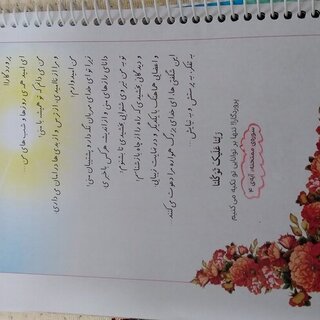 پروردگارا!
ای امید همه ی روزها و شب های من ...
من می دانم که تو همیشه با منی؛
و مرا از ناامیدی، از ترس و از بدی ها در امان می داری.
من امیدوارم؛
زیرا تو ای خدای مهربان نگه دار و پشتیبان منی؛
دانای رازهای منی و از اندیشه ی هر کس باخبری.
تو به من نیروی شنوایی بخشیدی تا بشنوم؛
و دیدگانی بخشیدی که راه را از چاه بازشناسم؛
و اعضایی هماهنگ با یکدیگر و در نهایت زیبایی.
این شگفتی ها، ای خدای بزرگ همواره مرا دعوت می کنند
به تفکر، به پرستش و به نیایش ...
رَبَّنا عَلَیکَ تَوَکَّلنا
پروردگارا! تنها بر توانایی تو تکیه می‌کنیم
سوره‌ی ممتحنه، آیه‌ی ۴